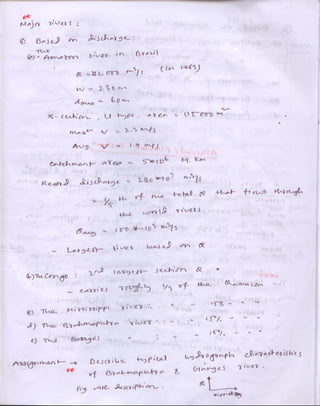 Major rivers :
① Based on discharge :
a) The Amazon river in Brazil
Q = 212,000 m³/s (in 1963)
W = 2,300 m
dmax = 60m
X-section, U type, area = 115,000 m²
maxm V = 2.3 mps
Avg. V = 1.9 mps
Catchment area = 5*10⁶ sq. km
Record discharge = 280*10³ m³/s
= 1/5 th of the total Q that flows through
the world rivers
Qavg = 180*10³ m³/s
- Largest river based on Q
b) The Congo : 2nd largest section Q
- carries roughly 1/3 of the Amazon
c) The Mississippi river : 15% - - "
d) The Brahmaputra river : 15% - - -
e) The Ganges : 15% - - -
Assignment → Describe typical hydrograph characteristics
of Brahmaputra & Ganges river.
Fig with description.
Q
months